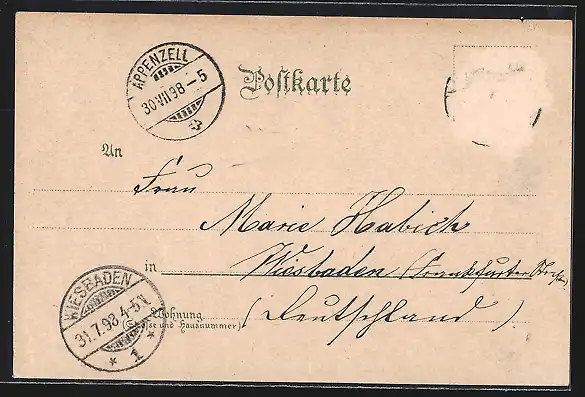 APPENZELL
30.VII.98.–5
Postkarte
An
Frau
Marie Habich
in Wiesbaden (Frankfurter Straße)
(Deutschland)
Wohnung
(Straße und Hausnummer)
WIESBADEN
31.7.98 4-5N.
* 1 *